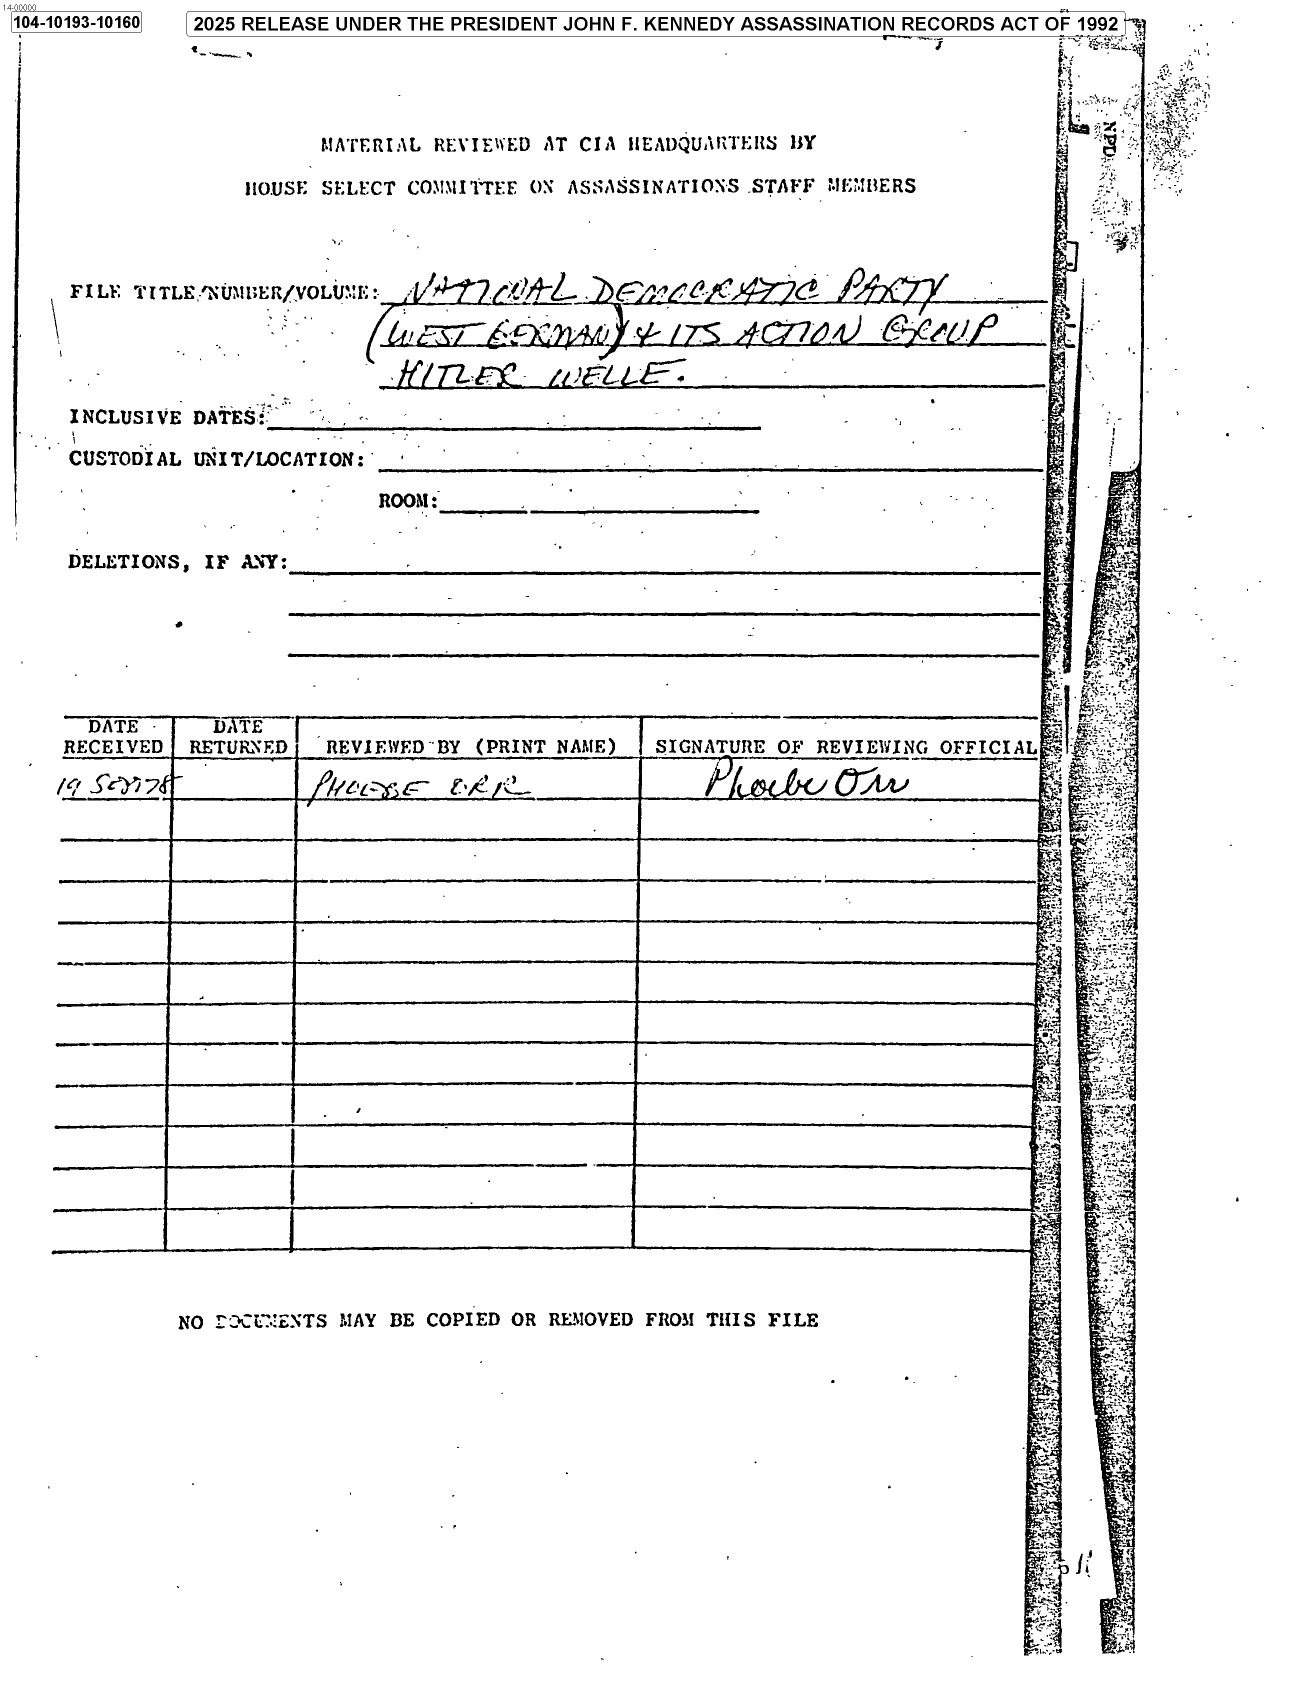 14-00000
104-10193-10160
2025 RELEASE UNDER THE PRESIDENT JOHN F. KENNEDY ASSASSINATION RECORDS ACT OF 1992
NPD
MATERIAL REVIEWED AT CIA HEADQUARTERS BY
HOUSE SELECT COMMITTEE ON ASSASSINATIONS STAFF MEMBERS
FILE TITLE/NUMBER/VOLUME: NATIONAL DEMOCRATIC PARTY
(WEST GERMANY) & ITS ACTION GROUP
HITLER WELLE.
INCLUSIVE DATES:
CUSTODIAL UNIT/LOCATION:
ROOM:
DELETIONS, IF ANY:
DATE RECEIVED DATE RETURNED REVIEWED BY (PRINT NAME) SIGNATURE OF REVIEWING OFFICIAL
19 Sep 78 PHOEBE ORR Phoebe Orr
NO DOCUMENTS MAY BE COPIED OR REMOVED FROM THIS FILE